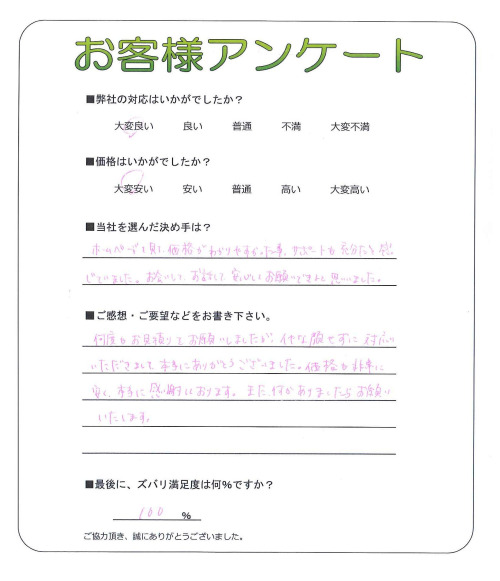 お客様アンケート
■弊社の対応はいかがでしたか？
大変良い 良い 普通 不満 大変不満
■価格はいかがでしたか？
大変安い 安い 普通 高い 大変高い
■当社を選んだ決め手は？
ホームページを見て、価格がわかりやすかった事、サポートも充分だと感
じていました。お会いして、お話して、安心してお願いできると思いました。
■ご感想・ご要望などをお書き下さい。
何度もお見積りをお願いしましたが、イヤな顔せずに対応
いただきまして本当にありがとうございました。価格も非常に
安く、本当に感謝しております。また、何かありましたらお願い
いたします。
■最後に、ズバリ満足度は何％ですか？
100 ％
ご協力頂き、誠にありがとうございました。